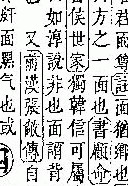 君面尊註面猶鄉也
方之一面也書顧命
侯世家獨韓信可屬
如淳說非也面謂背
也又前漢張敞傳自
面黑气也或